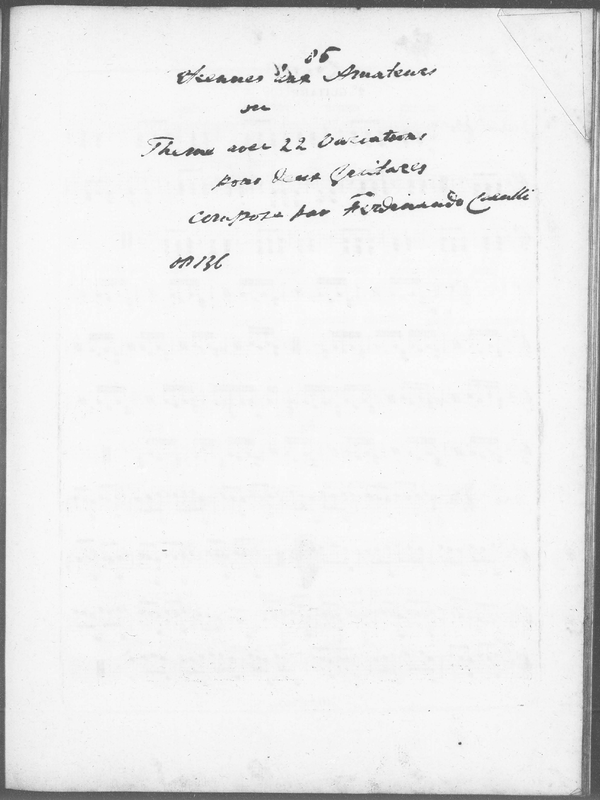 86
Etrennes aux Amateurs
ou
Theme avec 22 Variations
pour deux Guitares
Composé par Ferdinando Carulli
op 136